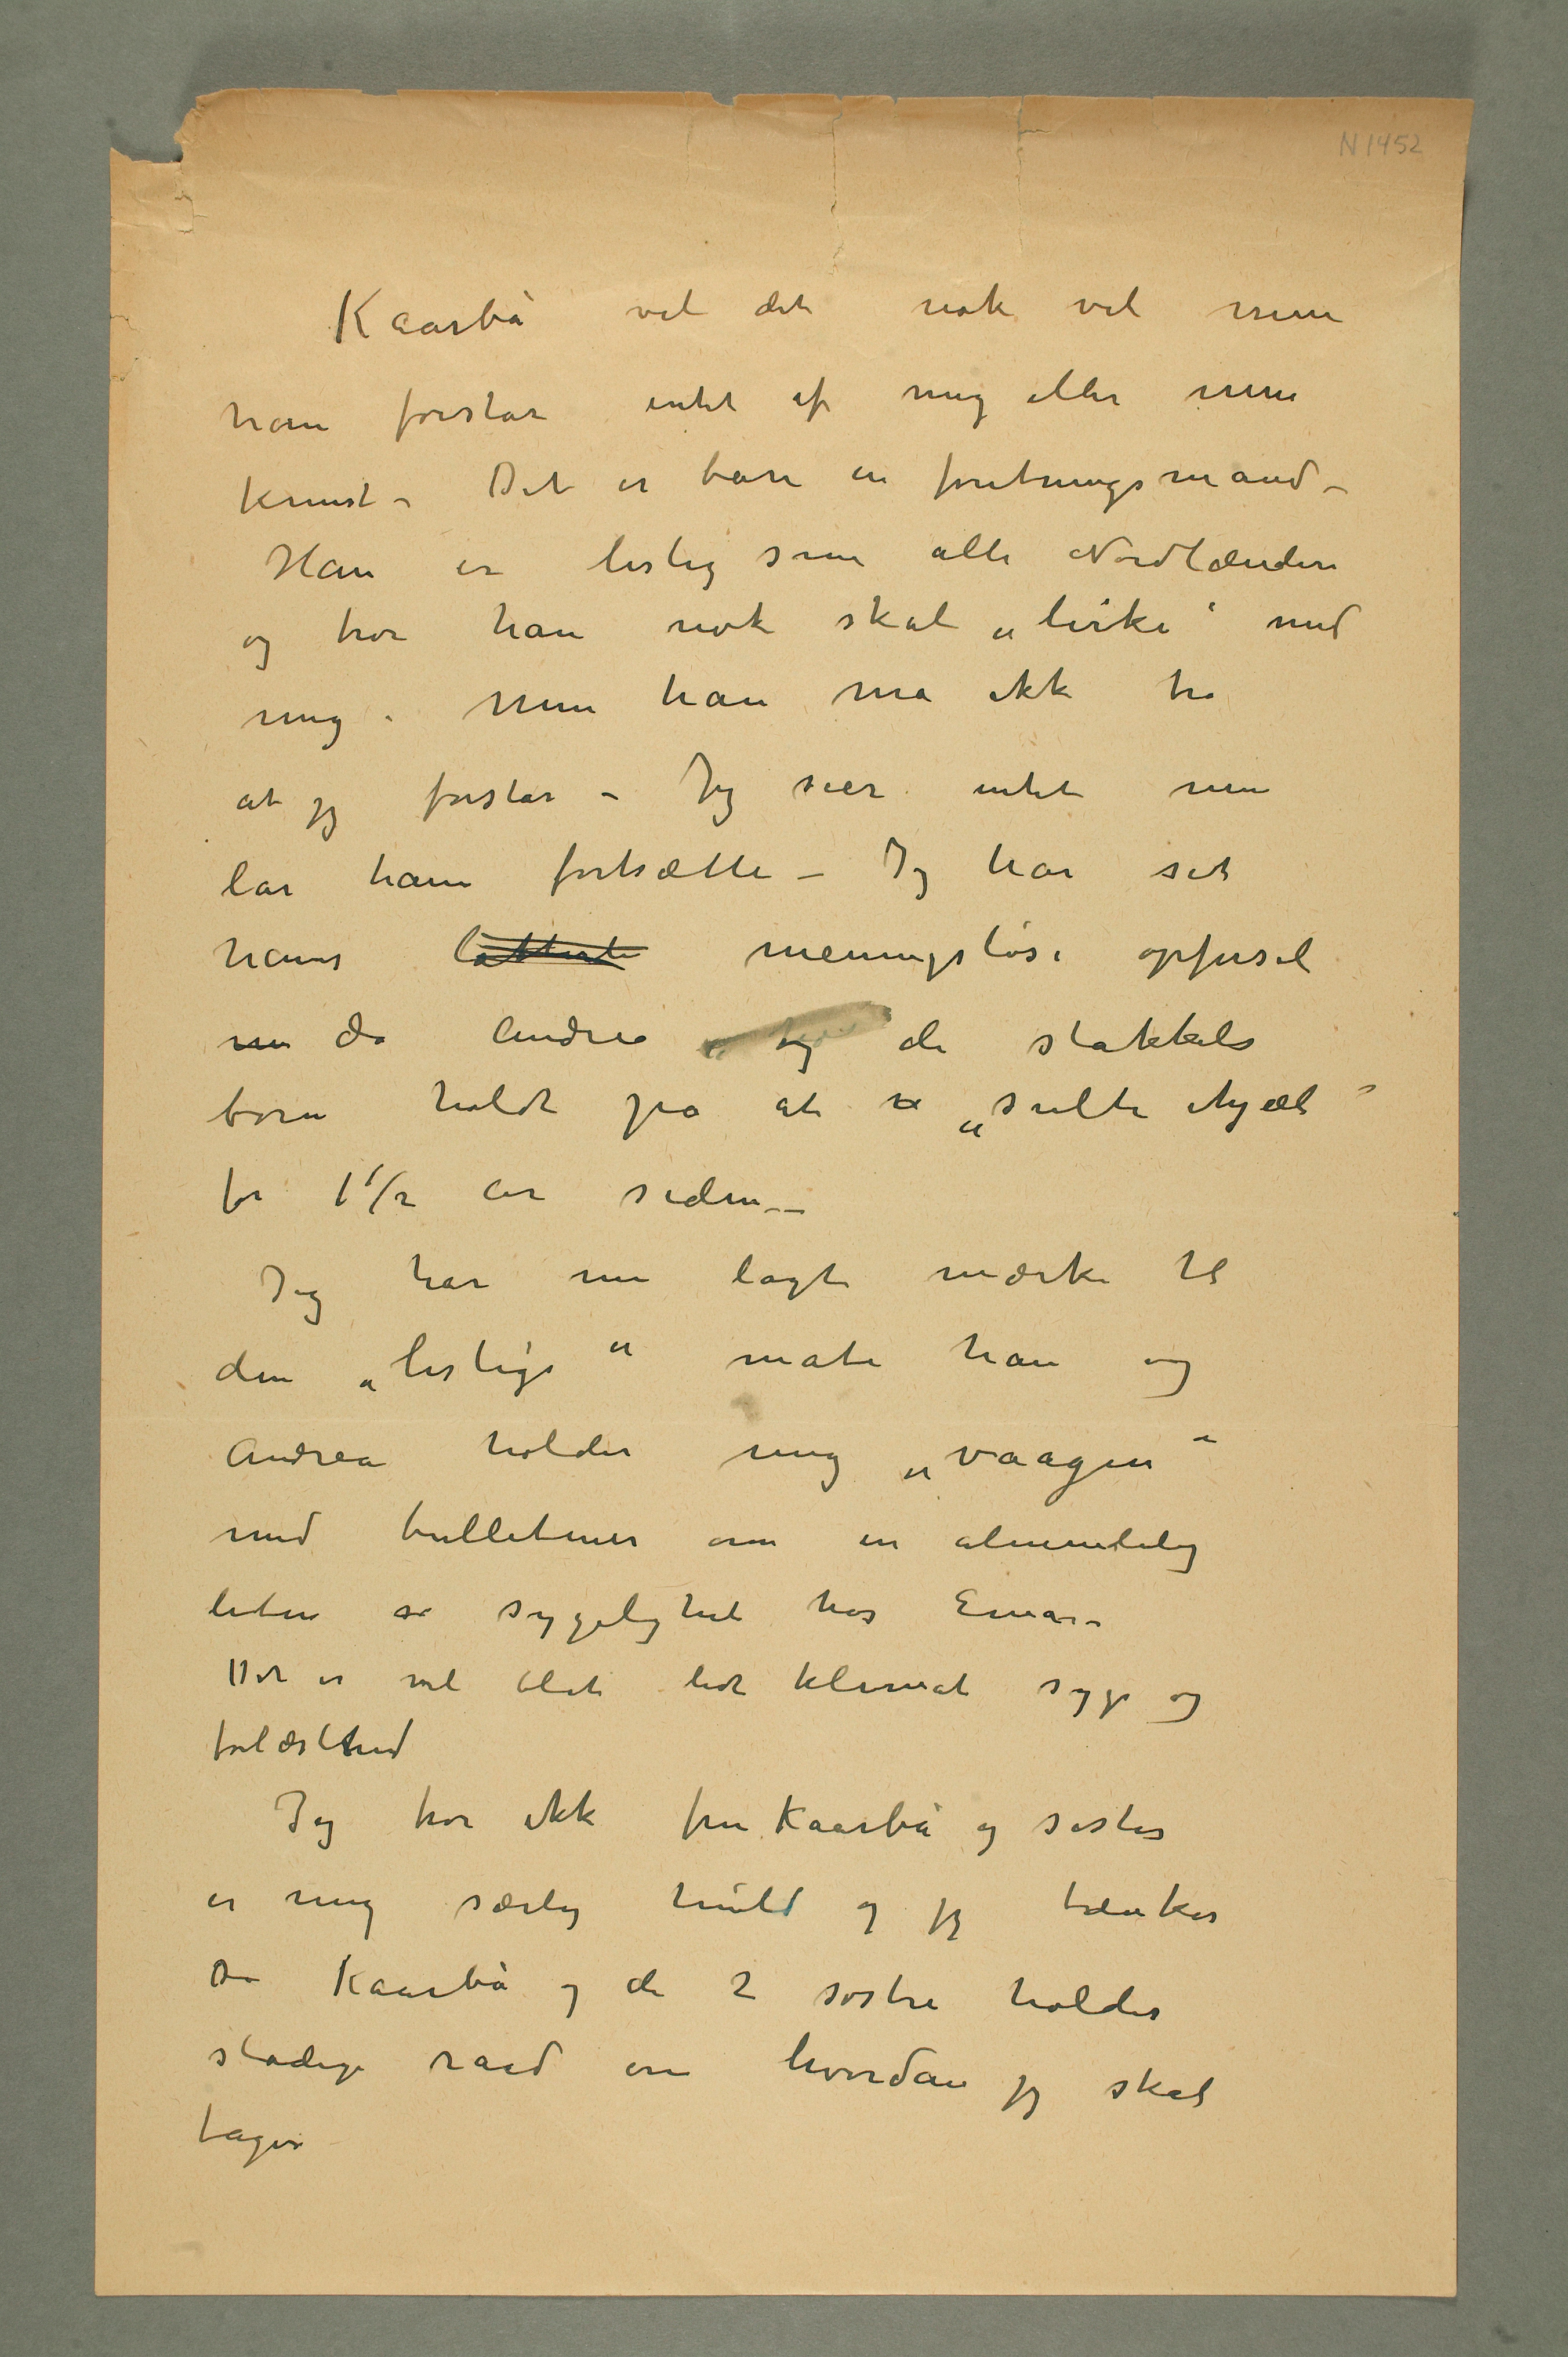 N 1452
Kaarbø vil det nok vel men
han forstår intet af mig eller min
kunst – Det er bare en foretningsmand –
Han er listig som alle Nordlændere
og tror han nok skal „lirke“ med
mig. Men han må ikke tro
at jeg forstår – Jeg sier intet men
lar ham fortsætte – Jeg har set
hans latterli meningsløse opførsel
nu da Andrea og de stakkels
børn holdt på at „sulte ihjæl“
for 1 1/2 år siden –
Jeg har nu lagt mærke til
den „listige“ måte han og
Andrea holder mig „vaagen“
med bulletiner om en almindelig
liten sygelighet hos Einar –
Det er vel blot lidt klimat syge og
forlæsthed
Jeg tror ikke fru Kaarbø og søster
er mig særlig huld og jeg tænker
Kaarbø og de 2 søstre holder
stadig raad om hvordan jeg skal
tages